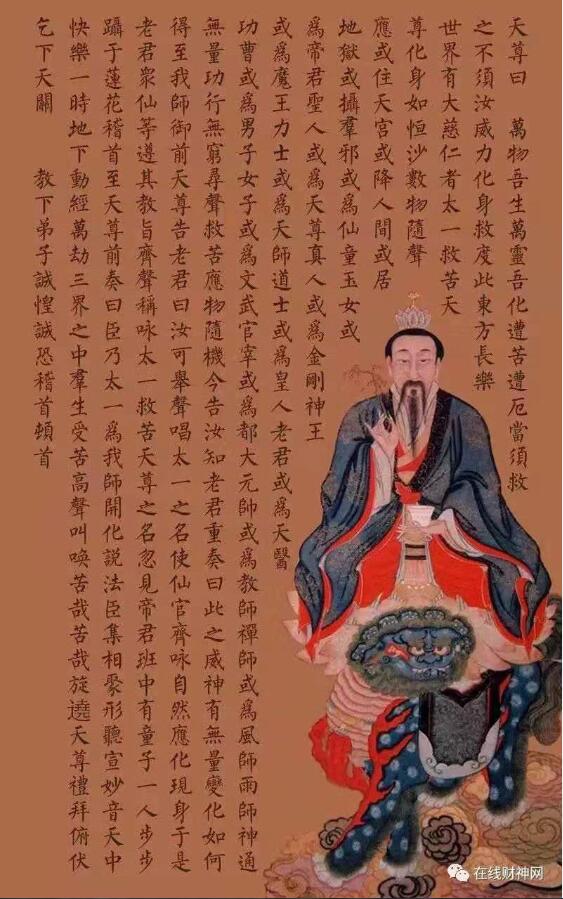 天尊曰　萬物吾生萬靈吾化遭苦遭厄當須救
之不須汝威力化身救度此東方長樂
世界有大慈仁者太一救苦天
尊化身如恒沙數物隨聲
應或住天宫或降人間或居
地獄或攝羣邪或爲仙童玉女或
爲帝君聖人或爲天尊真人或爲金剛神王
或爲魔王力士或爲天師道士或爲皇人老君或爲天醫
功曹或爲男子女子或爲文武官宰或爲都大元帥或爲教師禪師或爲風師雨師神通
無量功行無窮尋聲救苦應物隨機今告汝知老君重奏曰此之威神有無量變化如何
得至我師御前天尊告老君曰汝可舉聲唱太一之名使仙官齊咏自然應化現身于是
老君衆仙等遵其教旨齊聲稱咏太一救苦天尊之名忽見帝君班中有童子一人步步
躡于蓮花稽首至天尊前奏曰臣乃太一爲我師開化説法臣集相聚形聽宣妙音天中
快樂一時地下動經萬劫三界之中羣生受苦高聲叫唤苦哉苦哉旋遶天尊禮拜俯伏
乞下天關　教下弟子誠惶誠恐稽首頓首
在线财神网